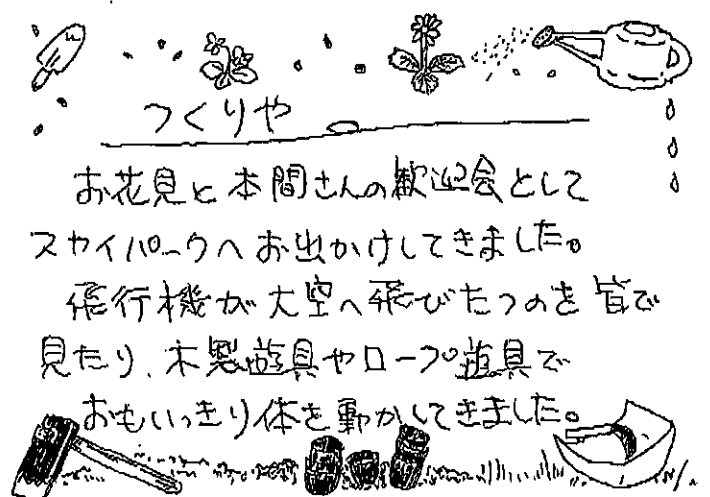 つくりや
お花見と本間さんの歓迎会として
スカイパークへお出かけしてきました。
飛行機が大空へ飛びたつのを皆で
見たり、木製遊具やロープ遊具で
おもいっきり体を動かしてきました。